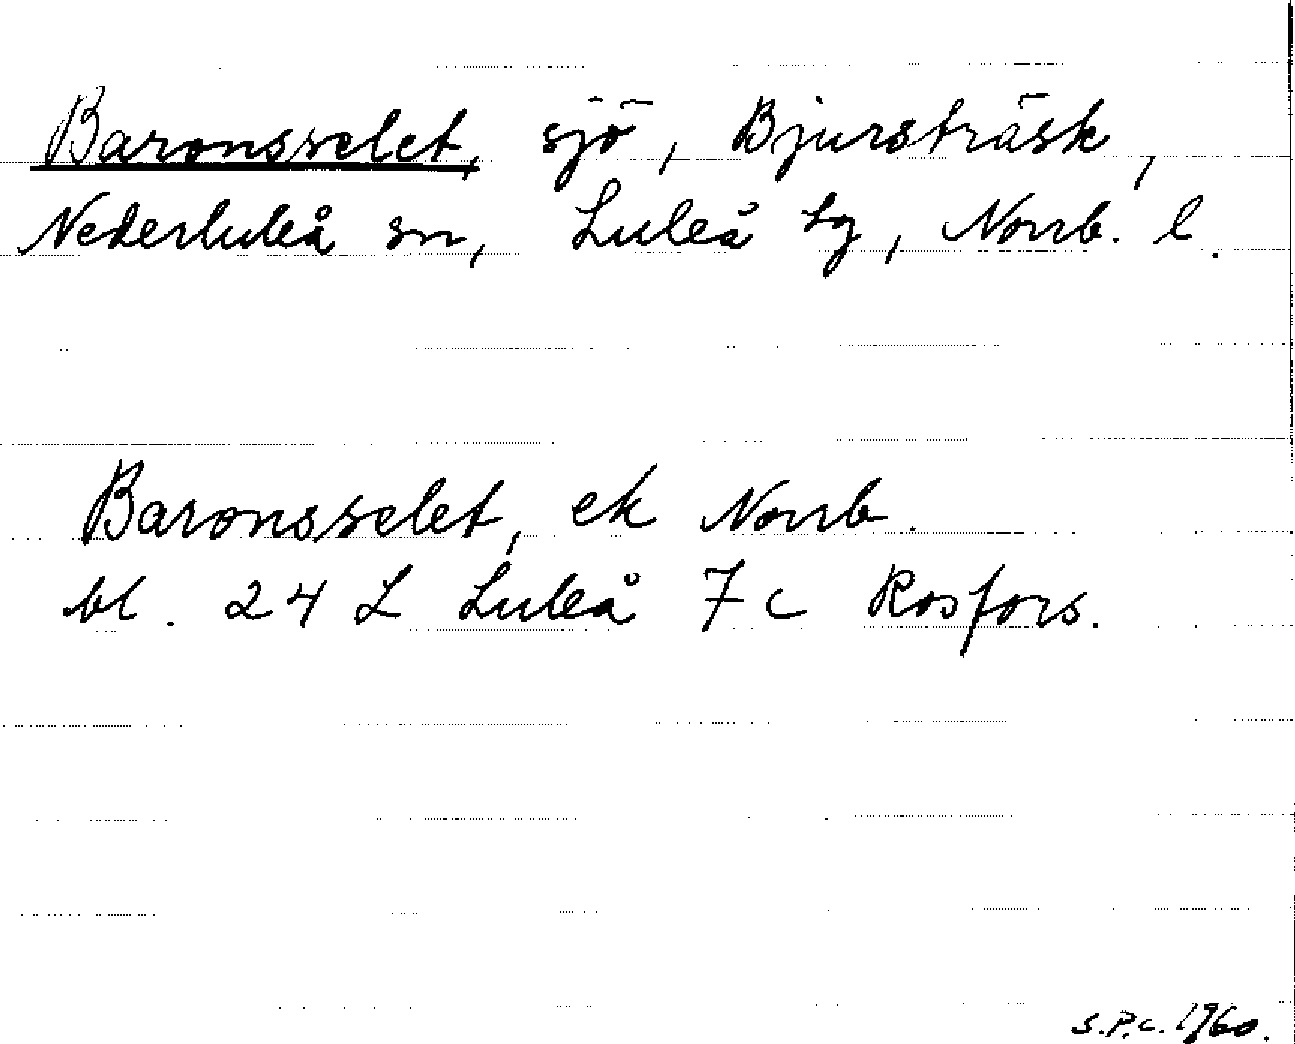 Baronsselet, sjö, Bjursträsk,
Nederluleå sn, Luleå tg, Norrb. l.
Baronsselet, ek Norrb.
bl. 24 L Luleå 7 c Rosfors.
S.P.C. 1960.